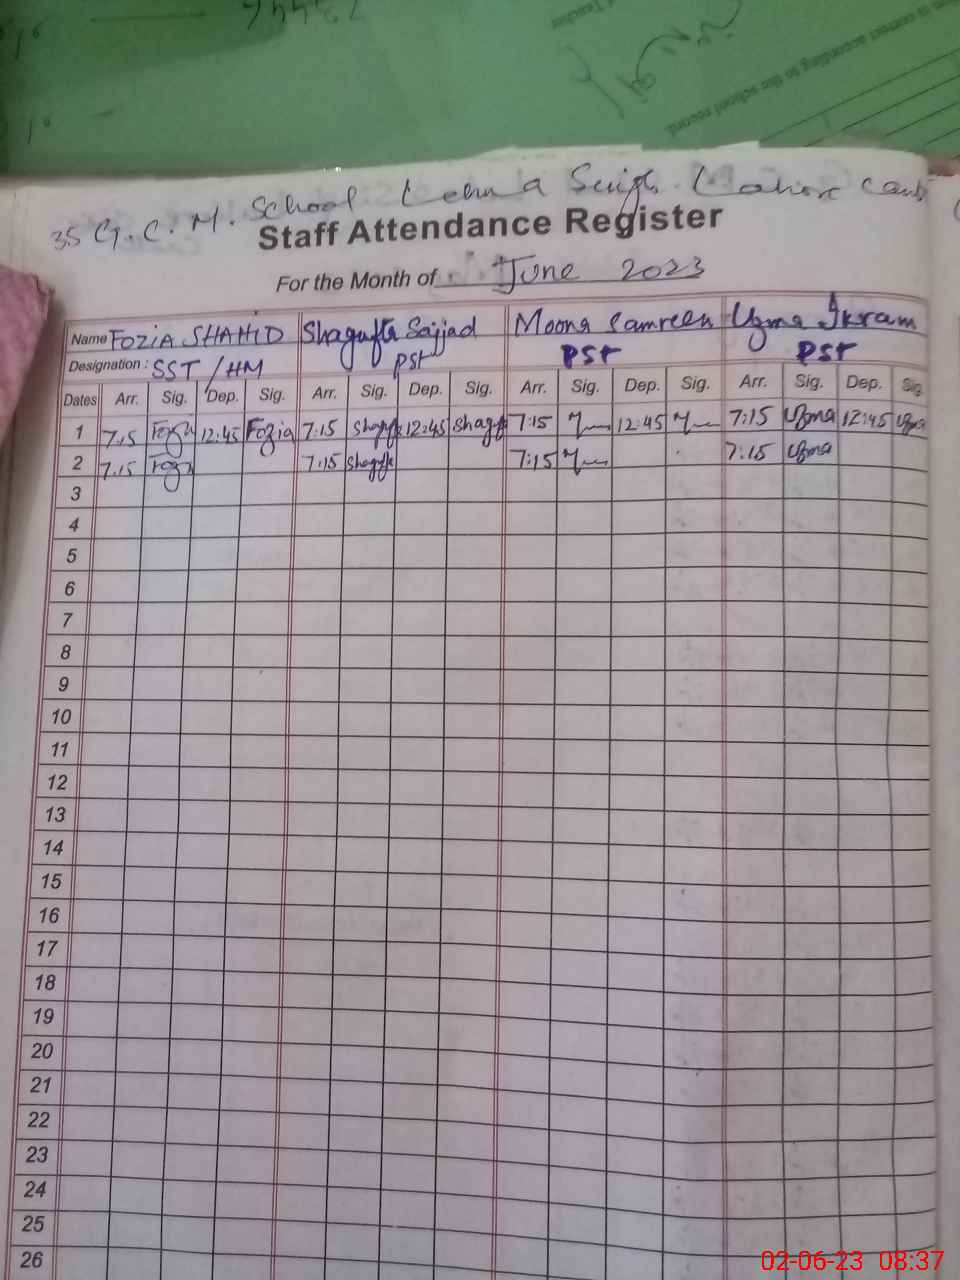 73444
Teacher
is correct according to the school record.
35 G.C.M. School Lehna Singh Lahore Cantt
Staff Attendance Register
For the Month of June 2023
Name Fozia SHAHID Shagufta Sajjad Moona Samreen Uzma Ikram
Designation : SST / HM PST PST PST
Dates Arr. Sig. Dep. Sig. Arr. Sig. Dep. Sig. Arr. Sig. Dep. Sig. Arr. Sig. Dep. Sig.
1 7:15 Fozia 12:45 Fozia 7:15 Shagufta 12:45 Shagufta 7:15 12:45 7:15 Uzma 12:45 Uzma
2 7:15 Fozia 7:15 Shagufta 7:15 7:15 Uzma
3
4
5
6
7
8
9
10
11
12
13
14
15
16
17
18
19
20
21
22
23
24
25
26
02-06-23 08:37